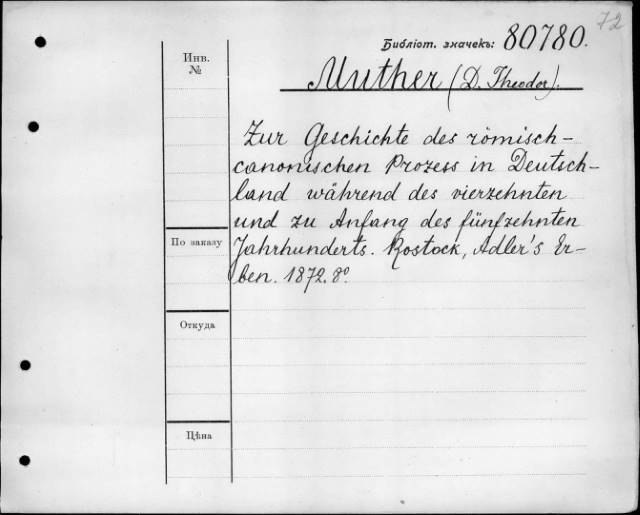 72
Библіот. значекъ: 80780.
Инв.
№
Muther (D. Theodor).
Zur Geschichte des römisch-
canonischen Prozess in Deutsch-
land während des vierzehnten
und zu Anfang des fünfzehnten
Jahrhunderts. Rostock, Adler's Er-
ben. 1872. 8º.
По заказу
Откуда
Цѣна